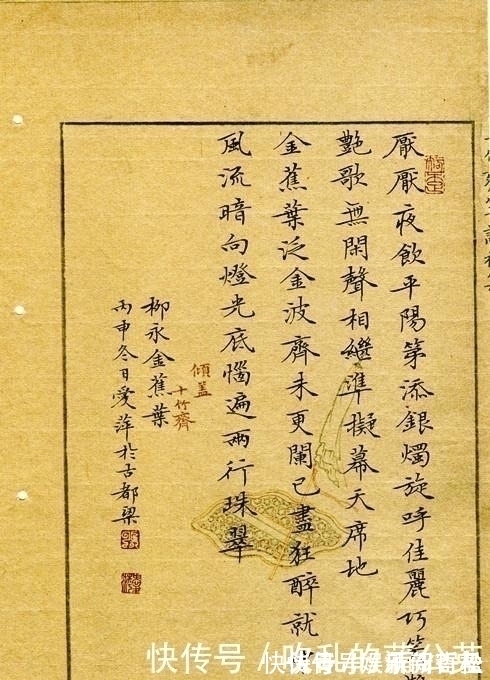 厭厭夜飲平陽第添銀燭旋呼佳麗巧笑
艷歌無閑聲相繼準擬幕天席地
金蕉葉泛金波齊未更闌已盡狂醉就
風流暗向燈光底惱遍兩行珠翠
傾盖
十竹齋
柳永金蕉葉
丙申冬日愛萍於古都梁
快传号 /